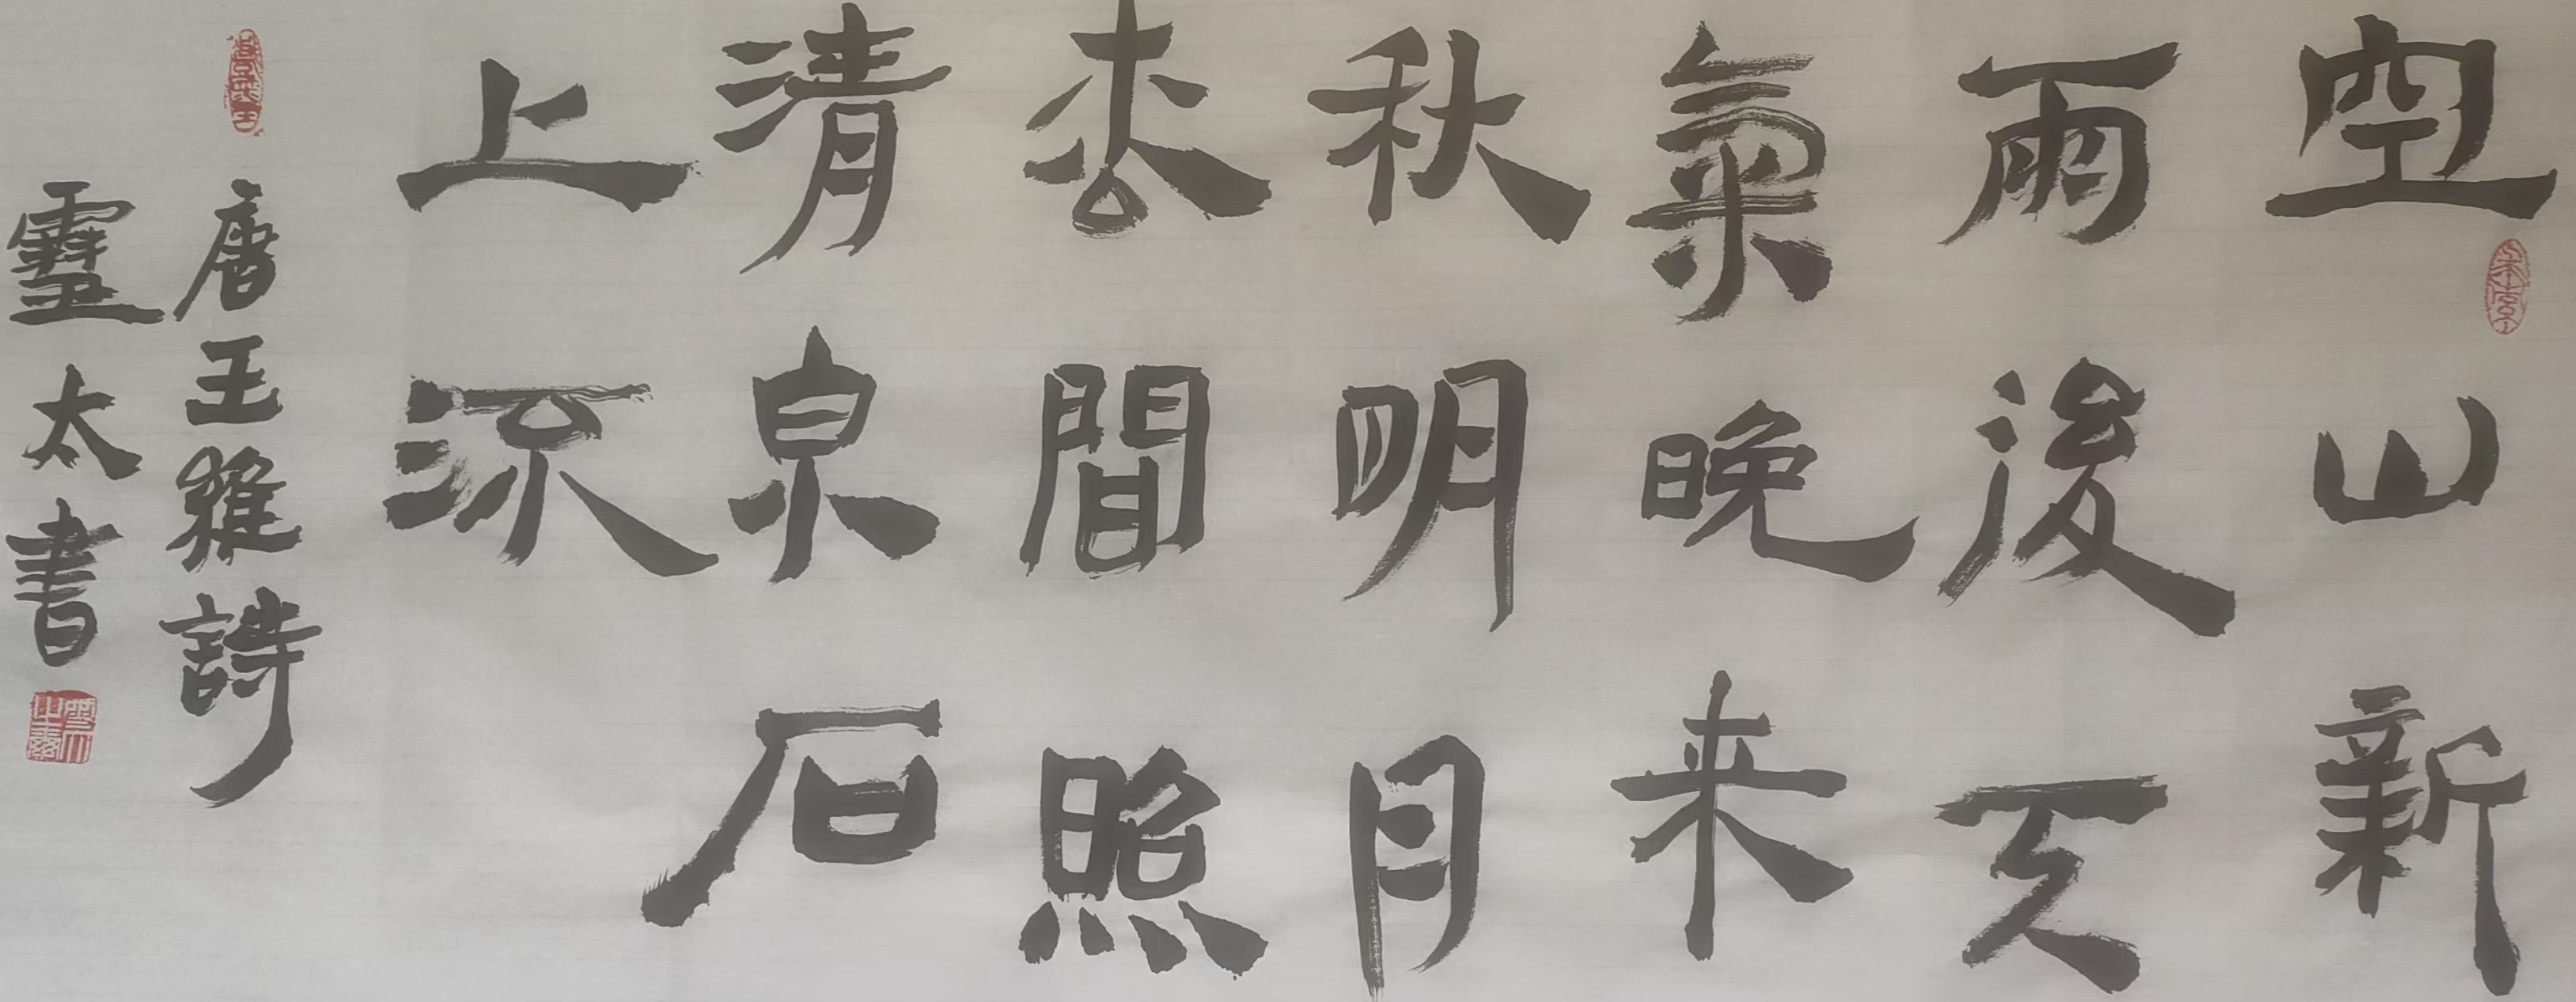 空山新
雨後天
氣晚来
秋明月
枩間照
清泉石
上流
唐王維詩
靈太書